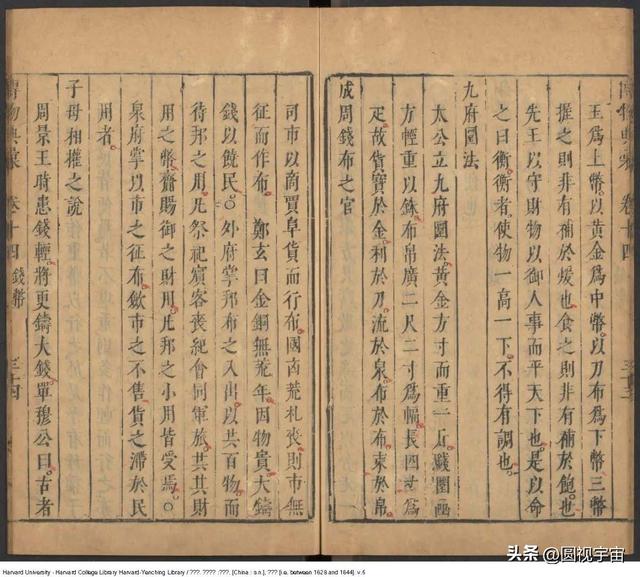 博物典彙 卷十四
玉爲上幣以黃金爲中幣以刀布爲下幣三幣
握之則非有補於煖也食之則非有補於飽也
先王以守財物以御人事而平天下也是以命
之曰衡衡者使物一高一下不得有調也
九府圜法
太公立九府圜法黃金方寸而重一斤錢圜函
方輕重以銖布帛廣二尺二寸爲幅長四丈爲
疋故貨寶於金利於刀流於泉布於布束於帛
成周錢布之官
司市以商賈阜貨而行布國凶荒札喪則市無
征而作布 鄭玄曰金銅無荒年因物貴大鑄
錢以饒民 外府掌邦布之入出以共百物而
待邦之用凡祭祀賓客喪紀會同軍旅共其財
用之幣齎賜御之財用凡邦之小用皆受焉
泉府掌以市之征布斂市之不售貨之滯於民
用者
子母相權之說
周景王時患錢輕將更鑄大錢單穆公曰古者
博物典彙 卷十四 錢幣 三十四
Harvard University - Harvard College Library Harvard-Yenching Library / ???. ???? :???. [China : s.n.], ??? [i.e. between 1628 and 1644]. v.6
头条 @圆视宇宙